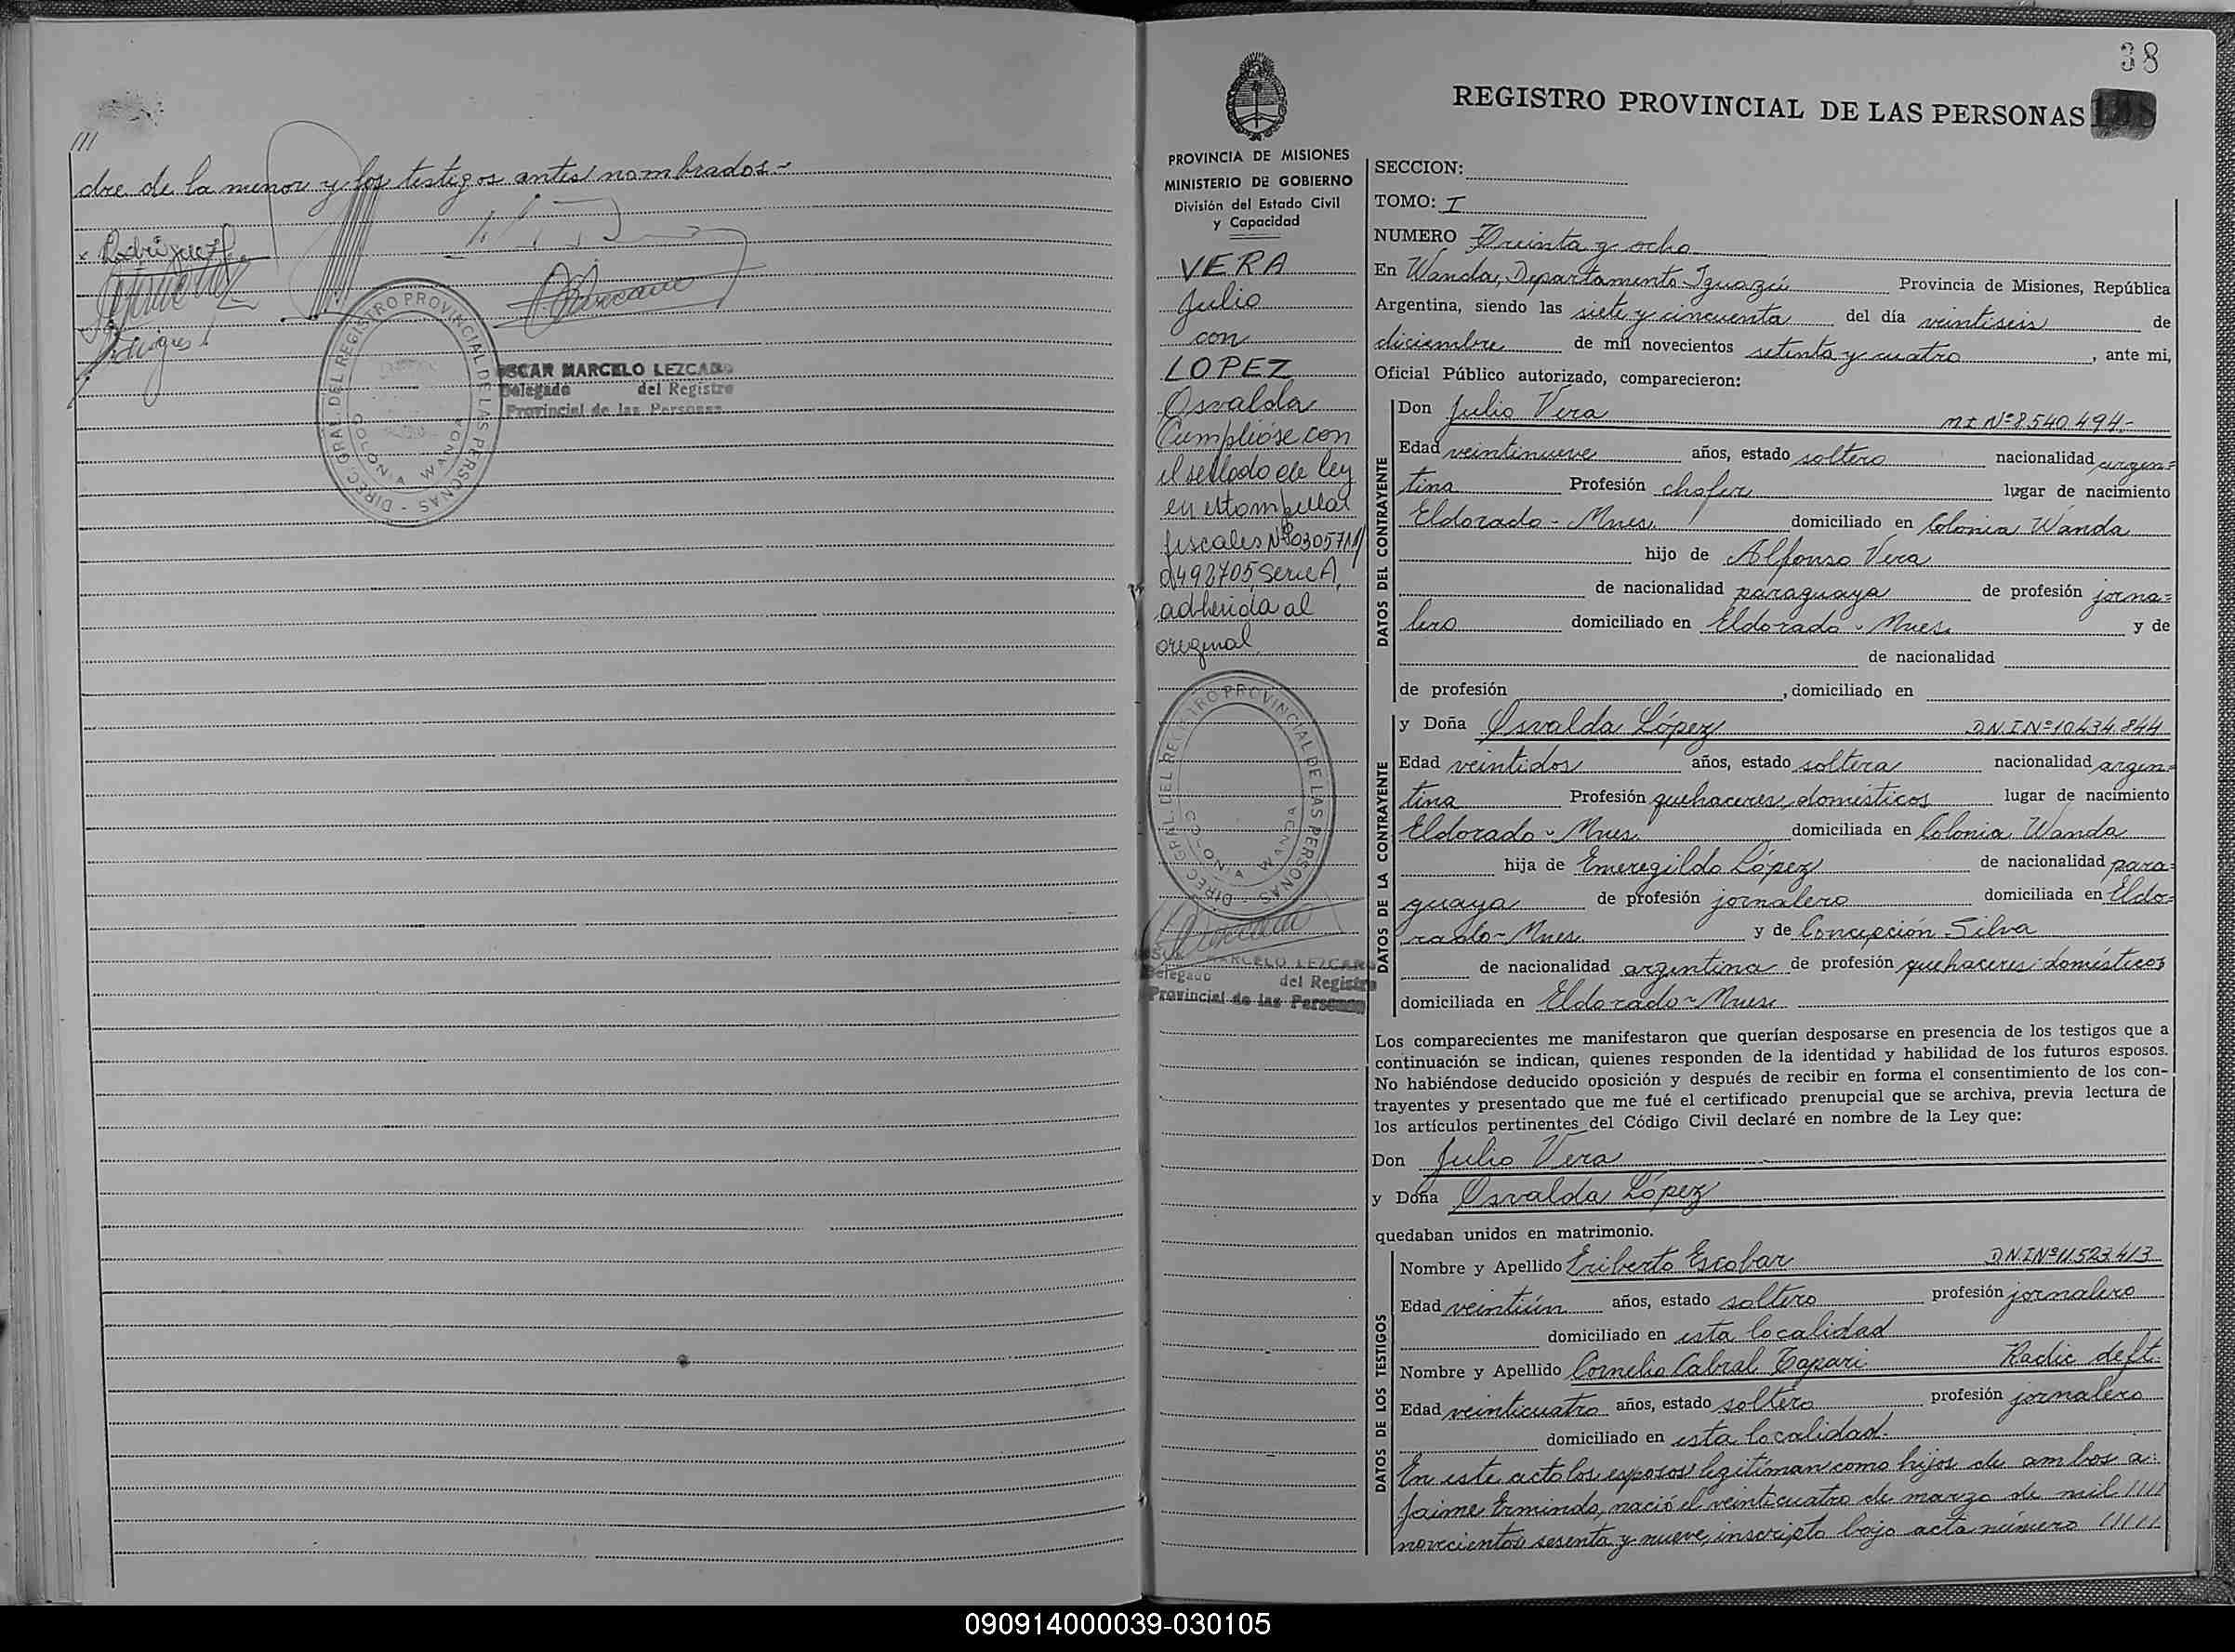 ///
dre de la menor y los testigos antes nombrados.-
x Rodriguez
DIREC. GRAL. DEL REGISTRO PROVINCIAL DE LAS PERSONAS -
COLONIA WANDA
OSCAR MARCELO LEZCANO
Delegado del Registro
Provincial de las Personas
38
REGISTRO PROVINCIAL DE LAS PERSONAS
PROVINCIA DE MISIONES
MINISTERIO DE GOBIERNO
División del Estado Civil
y Capacidad
VERA
Julio
con
LOPEZ
Osvalda
Cumplióse con
el sellado de ley
en estampillas
fiscales Nº0305711/
0492705, Serie A,
adherida al
original.
DIREC. GRAL. DEL REGISTRO PROVINCIAL DE LAS PERSONAS -
COLONIA WANDA
MARCELO LEZCANO
Delegado del Registro
Provincial de las Personas
SECCION:
TOMO: I
NUMERO Treinta y ocho
En Wanda, Departamento Iguazú Provincia de Misiones, República
Argentina, siendo las siete y cincuenta del día veintiseis de
diciembre de mil novecientos setenta y cuatro, ante mi,
Oficial Público autorizado, comparecieron:
DATOS DEL CONTRAYENTE
Don Julio Vera M.I. Nº 8.540.494.-
Edad veintinueve años, estado soltero nacionalidad argen=
tina Profesión chofer lugar de nacimiento
Eldorado - Mnes. domiciliado en Colonia Wanda
hijo de Alfonso Vera
de nacionalidad paraguaya de profesión jorna=
lero domiciliado en Eldorado - Mnes. y de
de nacionalidad
de profesión , domiciliado en
DATOS DE LA CONTRAYENTE
y Doña Osvalda López D.N.I. Nº 10.434.844
Edad veintidos años, estado soltera nacionalidad argen=
tina Profesión quehaceres domésticos lugar de nacimiento
Eldorado - Mnes. domiciliada en Colonia Wanda
hija de Emeregildo López de nacionalidad para=
guaya de profesión jornalero domiciliada en Eldo=
rado - Mnes. y de Concepción Silva
de nacionalidad argentina de profesión quehaceres domésticos
domiciliada en Eldorado - Mnes.
Los comparecientes me manifestaron que querían desposarse en presencia de los testigos que a
continuación se indican, quienes responden de la identidad y habilidad de los futuros esposos.
No habiéndose deducido oposición y después de recibir en forma el consentimiento de los con-
trayentes y presentado que me fué el certificado prenupcial que se archiva, previa lectura de
los artículos pertinentes del Código Civil declaré en nombre de la Ley que:
Don Julio Vera
y Doña Osvalda López
quedaban unidos en matrimonio.
DATOS DE LOS TESTIGOS
Nombre y Apellido Eriberto Escobar D.N.I. Nº 11.523.413
Edad veintiún años, estado soltero profesión jornalero
domiciliado en esta localidad
Nombre y Apellido Cornelio Cabral Radic deft.
Edad veinticuatro años, estado soltero profesión jornalero
domiciliado en esta localidad.
En este acto los esposos legitiman como hijos de ambos a:
Jaime Ermindo, nació el veinticuatro de marzo de mil ////
novecientos sesenta y nueve, inscripto bajo acta número /////
090914000039-030105